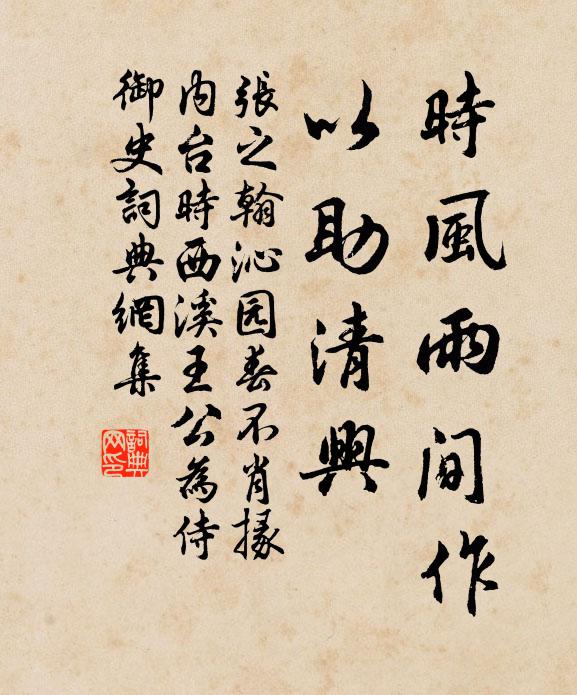 時風雨間作
以助清興
張之翰沁园春不肖掾
内台時西溪王公為侍
御史詞典網集
詞典网印